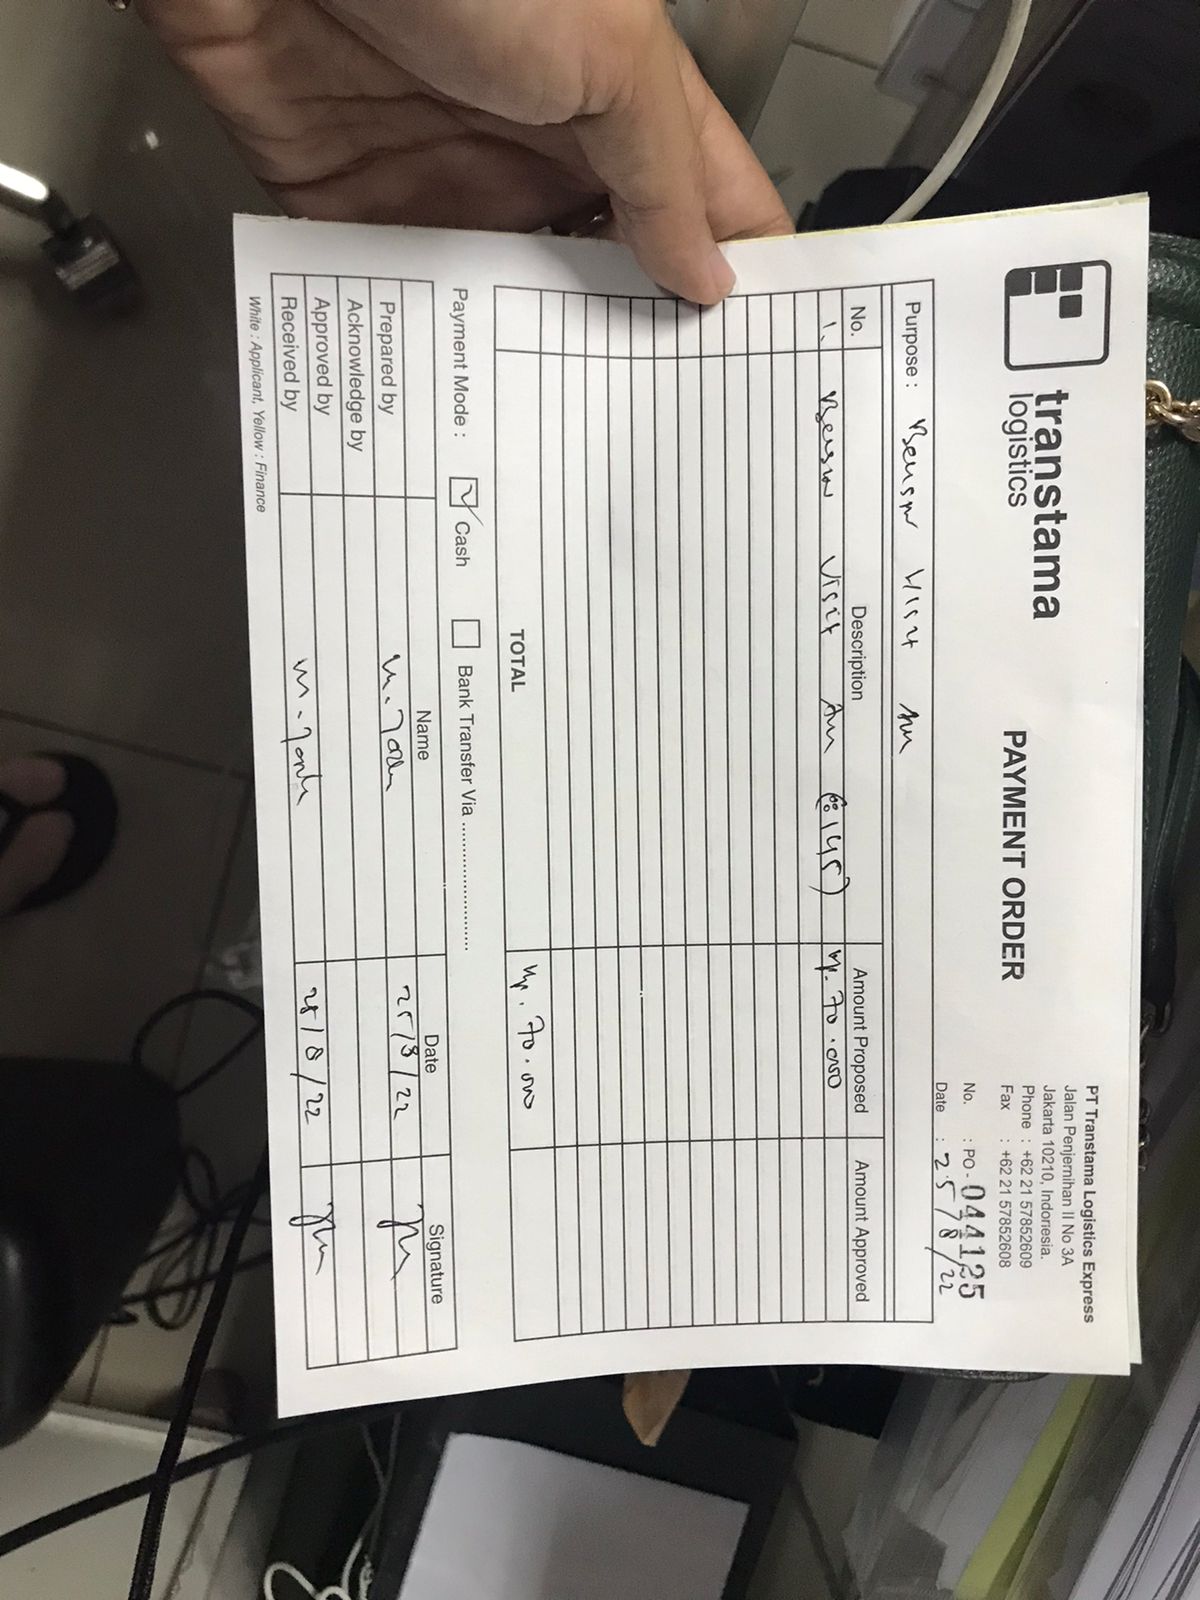 transtama
logistics
PAYMENT ORDER
PT Transtama Logistics Express
Jalan Penjernihan II No 3A
Jakarta 10210, Indonresia.
Phone : +62 21 57852609
Fax : +62 21 57852608
No. : PO - 044125
Date : 25/8/22
Purpose : Bensin Visit
No. Description Amount Proposed Amount Approved
1. Bensin Visit Rp. 70.000
TOTAL Rp. 70.000
Payment Mode : Cash Bank Transfer Via ........................
Name Date Signature
Prepared by 25/8/22
Acknowledge by
Approved by
Received by 25/8/22
White : Applicant, Yellow : Finance